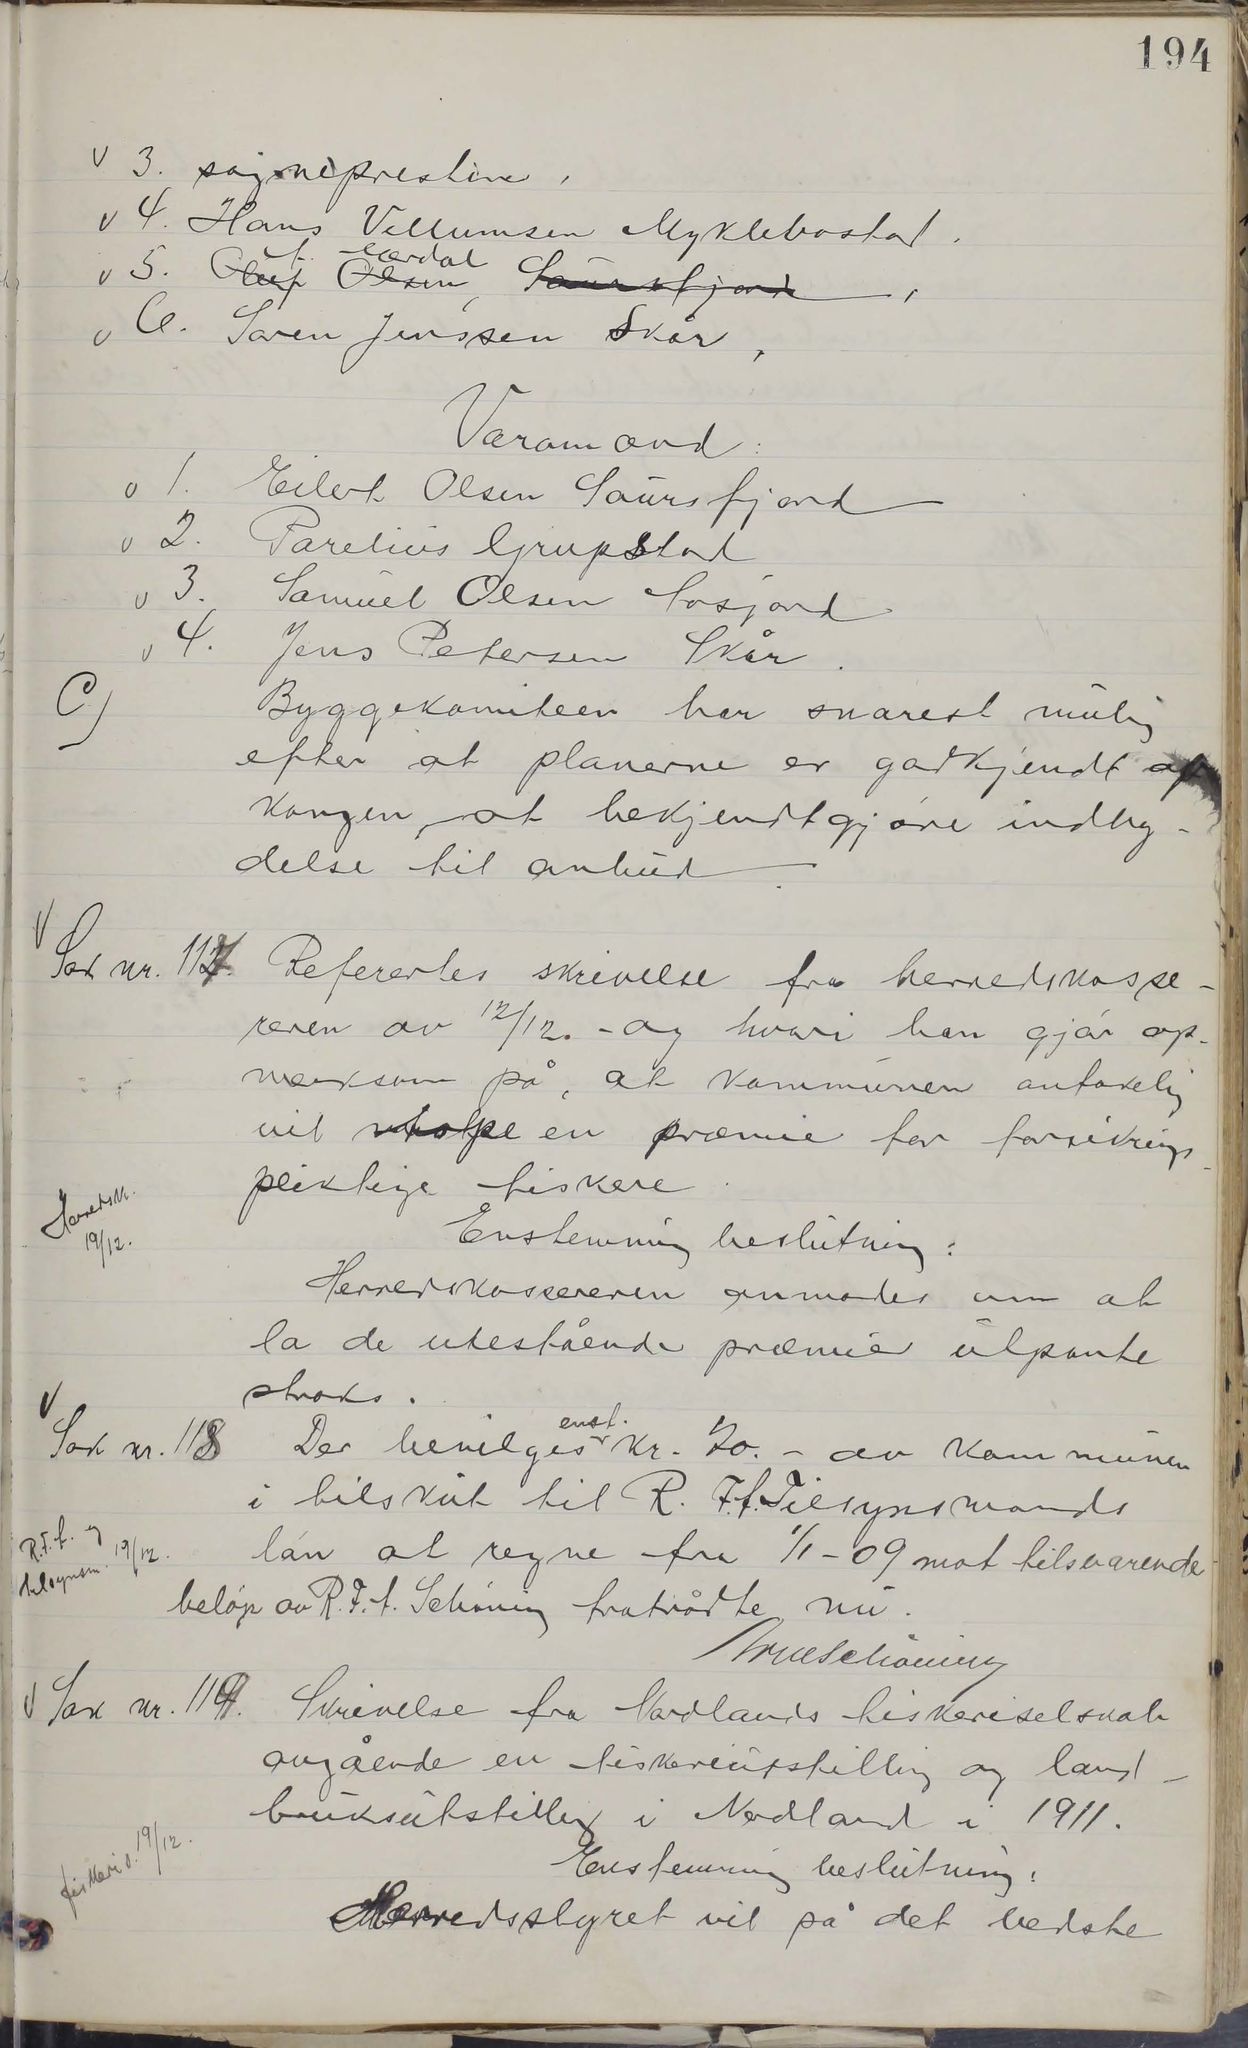 194
v 3. sogneprestene,
v 4. Hans Villumsen Myklebostad.
v 5. Oluf Olsen, Saursfjord,
v 6. Søren Jenssen Skår,
Varamænd:
v 1. Eilert Olsen Saursfjord
v 2. Parelius Grupstad
v 3. Samuel Olsen Løsjord
v 4. Jens Petersen Skår.
C) Byggekomiteen har snarest mulig
efter at planerne er godkjendt af
kongen, at bekjendtgjøre indby-
delse til anbud.
v
Sak nr. 117. Refertes skrivelse fra herredskasse-
reren av 12/12. - og hvori han gjør op-
merksom på, at kommunen antakelig
vil en præmie for forsikrings-
pliktige fiskere.
Herredsk.
19/12.
Enstemmig beslutning:
Herredskassereren anmodes om at
la de utestående præmier utpante
straks.
v
Sak nr. 118 Der bevilges enst. kr. 20. - av kommunen
i tilskut til R. F.f. Tilsynsmands
R.F.f. og
tilsynsm. 19/12.
løn at regne fra 1/1-09 mot tilsvarende
beløp av R.F.f. Schøning fratrådte nu.
Arne Schøning
v Sak nr. 119. Skrivelse fra Nordlands fiskeriselskab
angående en fiskeriutstilling og land-
bruksutstilling i Nordland i 1911.
fiskeris. 19/12.
Enstemmig beslutning:
Herredsstyret vil på det bedste